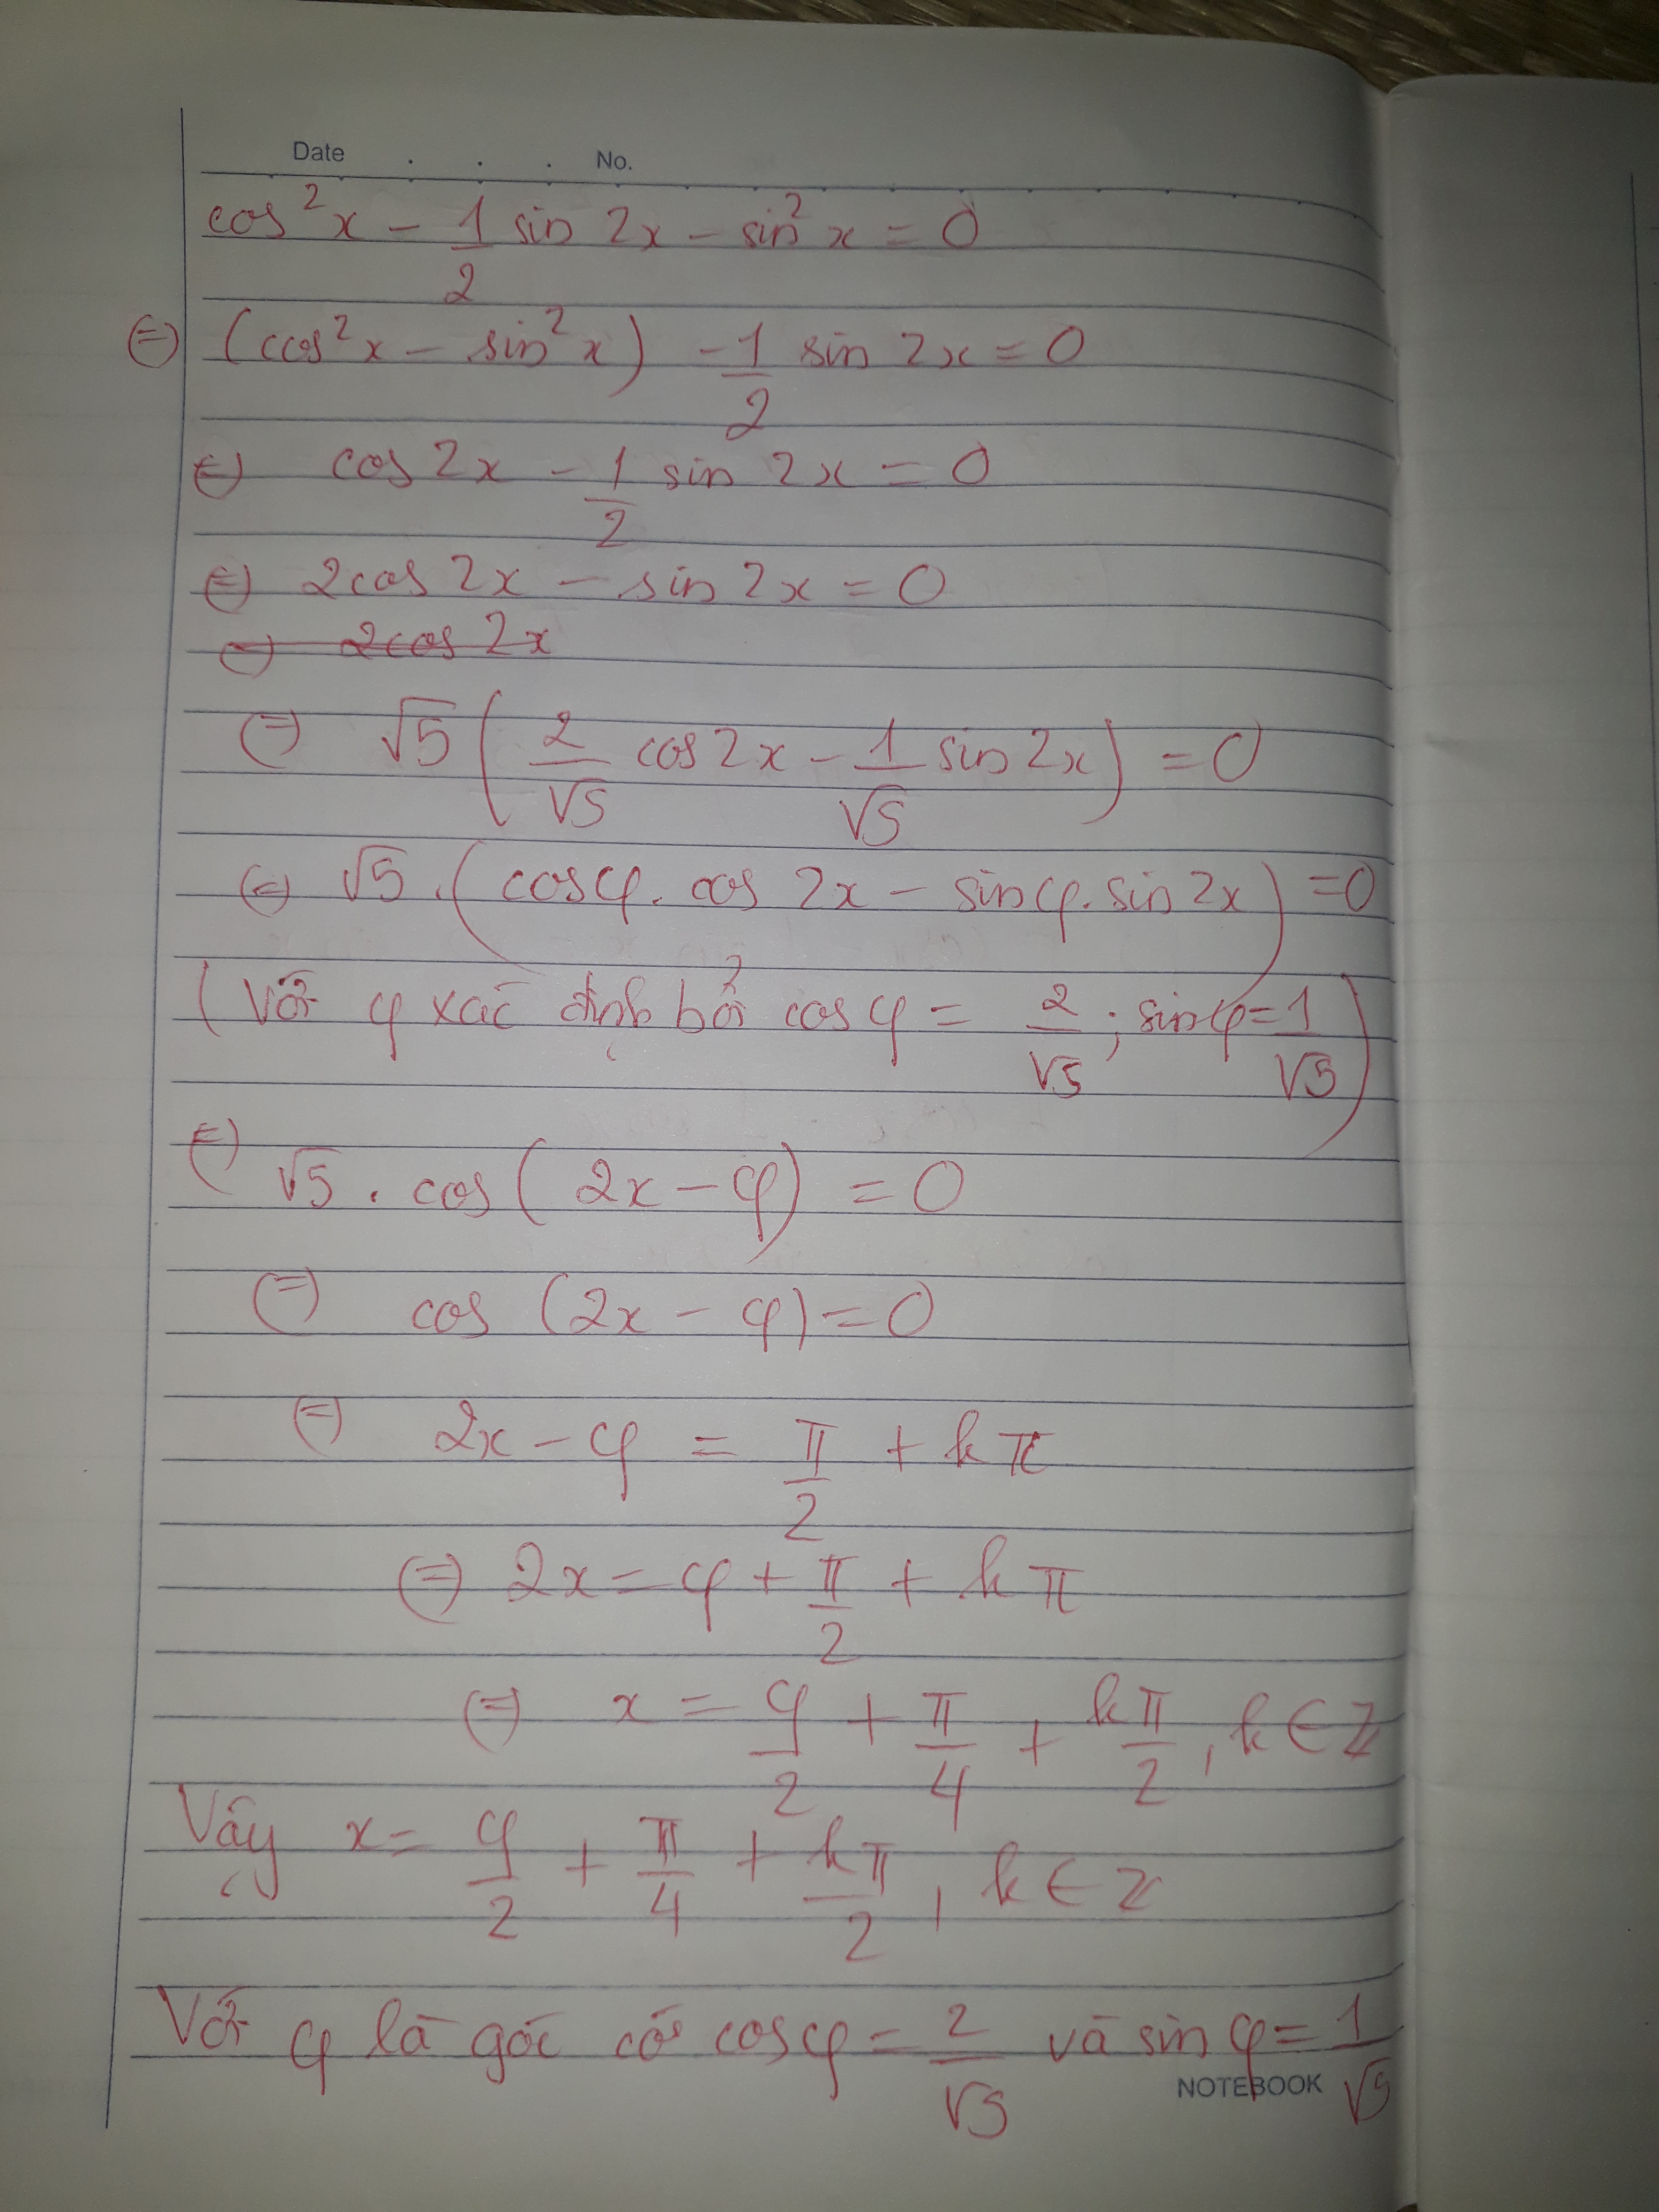 Date . . . No.
cos²x - 1/2 sin 2x - sin²x = 0
⇔ (cos²x - sin²x) - 1/2 sin 2x = 0
⇔ cos 2x - 1/2 sin 2x = 0
⇔ 2cos 2x - sin 2x = 0
⇔ 2cos 2x
⇔ √5 (2/√5 cos 2x - 1/√5 sin 2x) = 0
⇔ √5 . (cosφ . cos 2x - sinφ . sin 2x) = 0
(Với φ xác định bởi cosφ = 2/√5 ; sinφ = 1/√5)
⇔ √5 . cos (2x - φ) = 0
⇔ cos (2x - φ) = 0
⇔ 2x - φ = π/2 + kπ
⇔ 2x = φ + π/2 + kπ
⇔ x = φ/2 + π/4 + kπ/2 , k ∈ Z
Vậy x = φ/2 + π/4 + kπ/2 , k ∈ Z
Với φ là góc có cosφ = 2/√5 và sin φ = 1/√5
NOTEBOOK